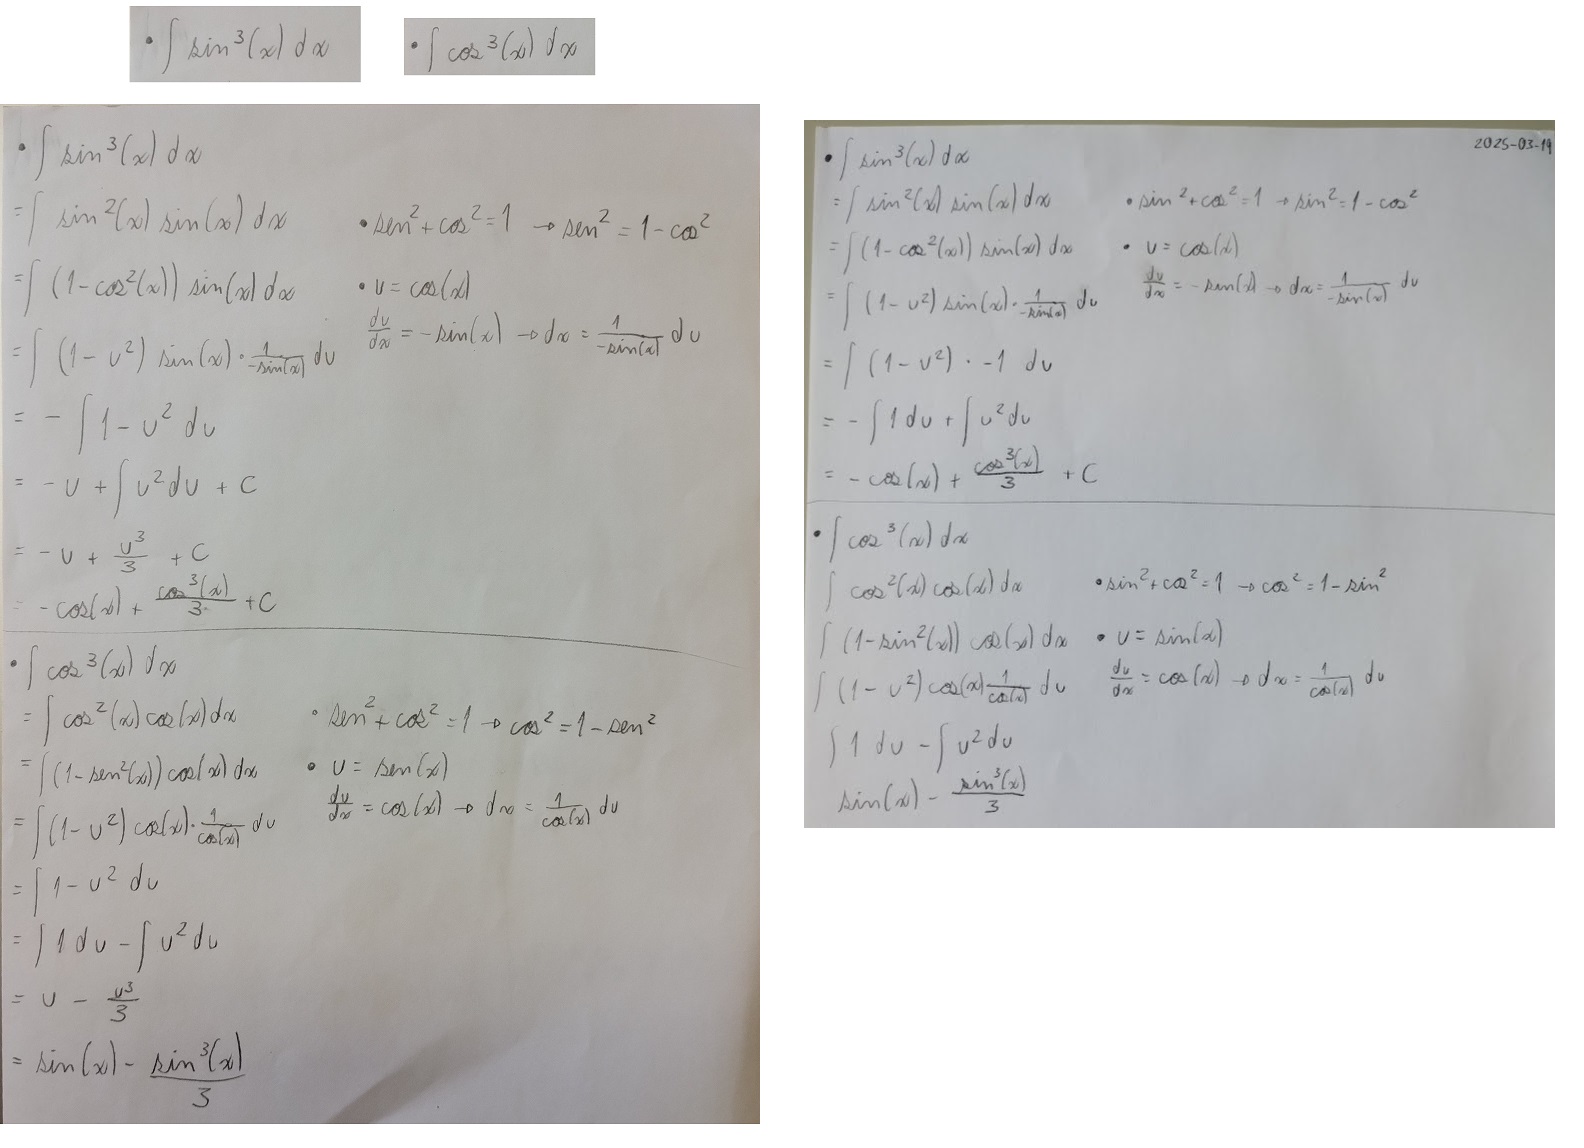 • ∫ sin³(x) dx
• ∫ cos³(x) dx
• ∫ sin³(x) dx
= ∫ sin²(x) sin(x) dx
• sen² + cos² = 1 → sen² = 1 - cos²
= ∫ (1 - cos²(x)) sin(x) dx
• u = cos(x)
du/dx = -sin(x) → dx = 1/-sin(x) du
= ∫ (1 - u²) sin(x) · 1/-sin(x) du
= - ∫ 1 - u² du
= - u + ∫ u² du + C
= - u + u³/3 + C
= - cos(x) + cos³(x)/3 + C
• ∫ cos³(x) dx
= ∫ cos²(x) cos(x) dx
• sen² + cos² = 1 → cos² = 1 - sen²
= ∫ (1 - sen²(x)) cos(x) dx
• u = sen(x)
du/dx = cos(x) → dx = 1/cos(x) du
= ∫ (1 - u²) cos(x) · 1/cos(x) du
= ∫ 1 - u² du
= ∫ 1 du - ∫ u² du
= u - u³/3
= sin(x) - sin³(x)/3
2025-03-19
• ∫ sin³(x) dx
= ∫ sin²(x) sin(x) dx
• sin² + cos² = 1 → sin² = 1 - cos²
= ∫ (1 - cos²(x)) sin(x) dx
• u = cos(x)
du/dx = - sin(x) → dx = 1/-sin(x) du
= ∫ (1 - u²) sin(x) · 1/-sin(x) du
= ∫ (1 - u²) · -1 du
= - ∫ 1 du + ∫ u² du
= - cos(x) + cos³(x)/3 + C
• ∫ cos³(x) dx
∫ cos²(x) cos(x) dx
• sin² + cos² = 1 → cos² = 1 - sin²
∫ (1 - sin²(x)) cos(x) dx
• u = sin(x)
du/dx = cos(x) → dx = 1/cos(x) du
∫ (1 - u²) cos(x) 1/cos(x) du
∫ 1 du - ∫ u² du
sin(x) - sin³(x)/3